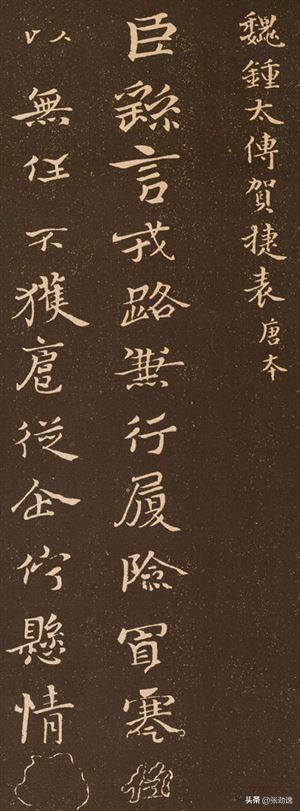 魏鍾太傅賀捷表 唐本
臣繇言戎路兼行履險冒寒臣
以無任不獲扈從企佇懸情
头条 @张劲逸